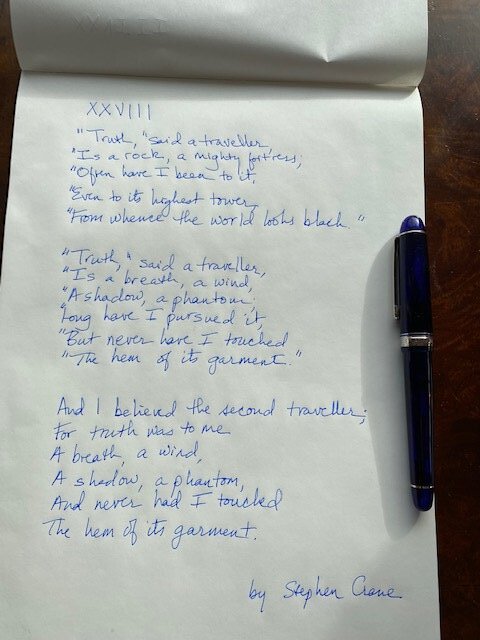 XXVIII
"Truth," said a traveller,
"Is a rock, a mighty fortress;
"Often have I been to it,
"Even to its highest tower,
"From whence the world looks black."
"Truth," said a traveller,
"Is a breath, a wind,
"A shadow, a phantom;
"Long have I pursued it,
"But never have I touched
"The hem of its garment."
And I believed the second traveller;
For truth was to me
A breath, a wind,
A shadow, a phantom,
And never had I touched
The hem of its garment.
by Stephen Crane